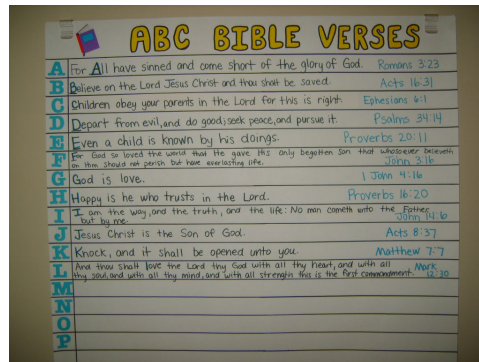 ABC BIBLE VERSES
A For All have sinned and come short of the glory of God. Romans 3:23
B Believe on the Lord Jesus Christ and thou shalt be saved. Acts 16:31
C Children obey your parents in the Lord for this is right Ephesians 6:1
D Depart from evil, and do good; seek peace, and pursue it. Psalms 34:14
E Even a child is known by his doings. Proverbs 20:11
F For God so loved the world that He gave this only begotten Son that whosoever believeth
on Him should not perish but have everlasting life. John 3:16
G God is love. 1 John 4:16
H Happy is he who trusts in the Lord. Proverbs 16:20
I I am the way, and the truth, and the life: No man cometh unto the Father
but by me. John 14:6
J Jesus Christ is the Son of God. Acts 8:37
K Knock, and it shall be opened unto you. Matthew 7:7
L And thou shalt love the Lord thy God with all thy heart, and with all Mark
thy soul, and with all thy mind, and with all strength this is the first commandment. 12:30
M
N
O
P